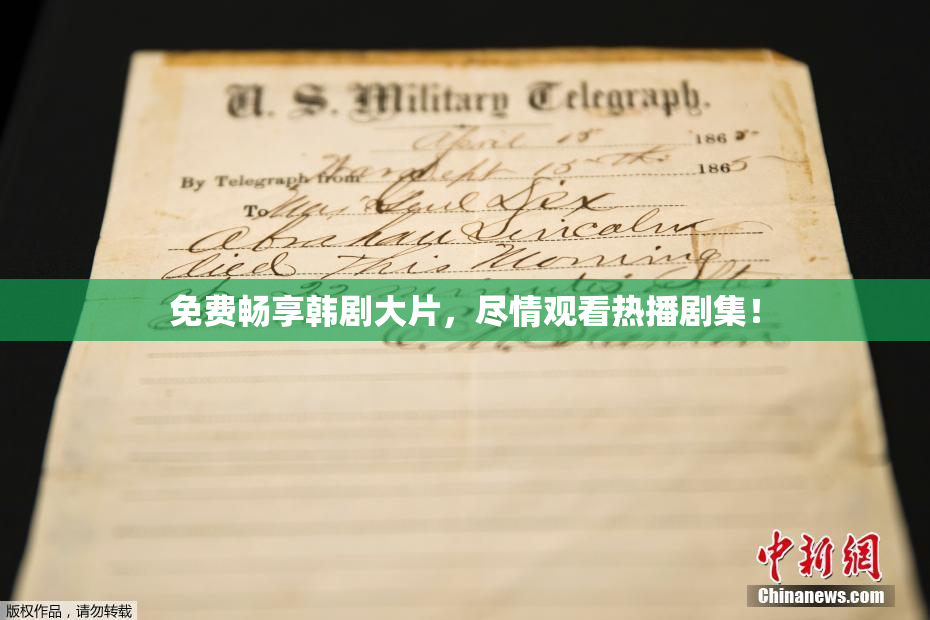 U. S. Military Telegraph.
April 15 1865
By Telegraph from War Dept 15th 1865
To Maj Genl Dix
Abraham Lincoln
died This Morning
at 22 minutes after
免费畅享韩剧大片，尽情观看热播剧集！
E. M. Stanton
中新网
Chinanews.com
版权作品，请勿转载